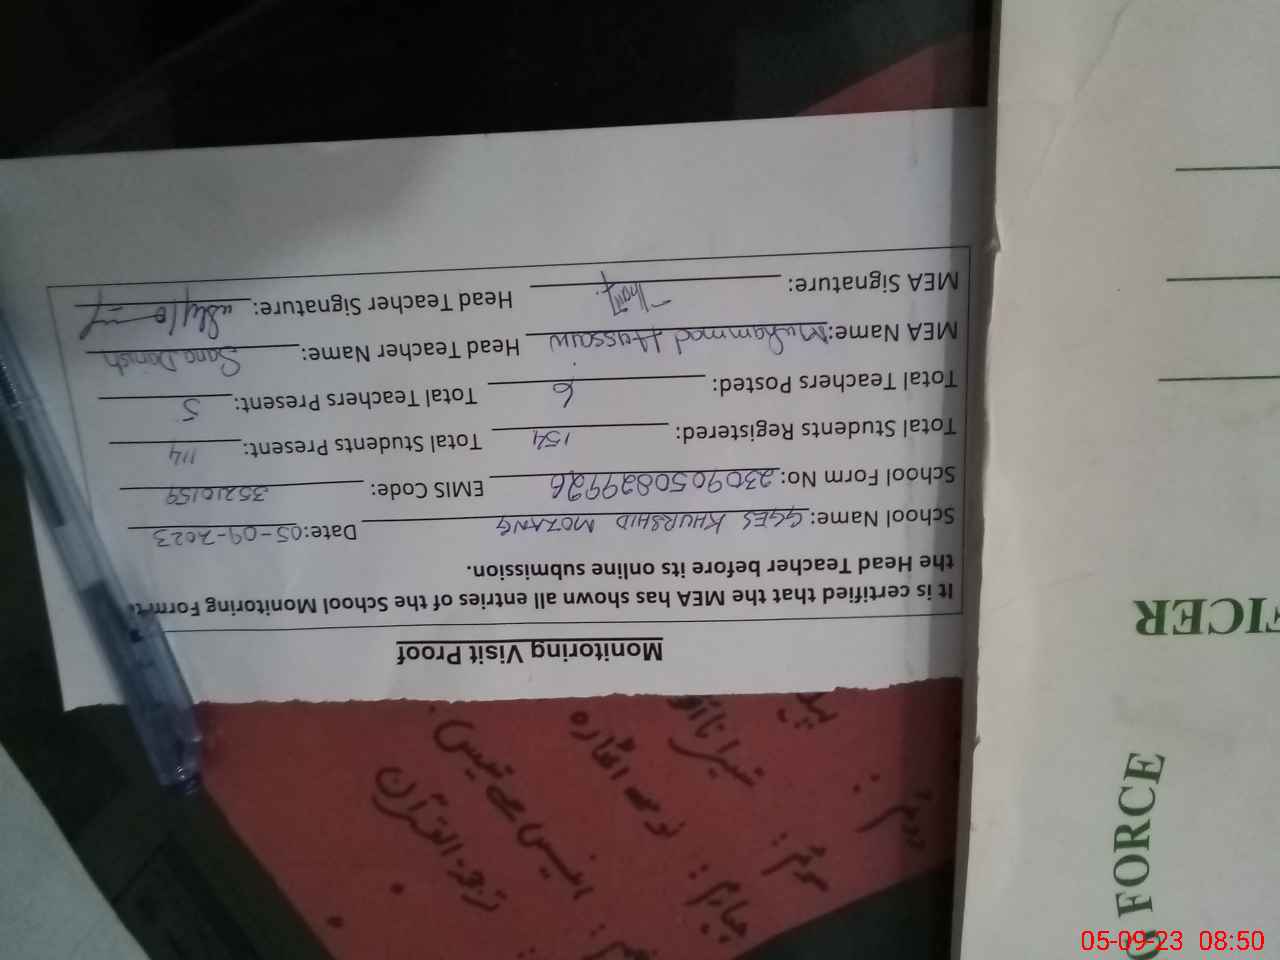 Monitoring Visit Proof
It is certified that the MEA has shown all entries of the School Monitoring Form
the Head Teacher before its online submission.
School Name: GGES KHURSHID MOZANG Date: 05-09-2023
School Form No: 2309050829926 EMIS Code: 35210159
Total Students Registered: 154 Total Students Present: 114
Total Teachers Posted: 6 Total Teachers Present: 5
MEA Name: Muhammad Hassan Head Teacher Name: Sara Danish
MEA Signature: Head Teacher Signature:
ترجمۃ القرآن
انیس سے تیس
نو سے اٹھارہ
چہارم:
FICER
FORCE
05-09-23 08:50